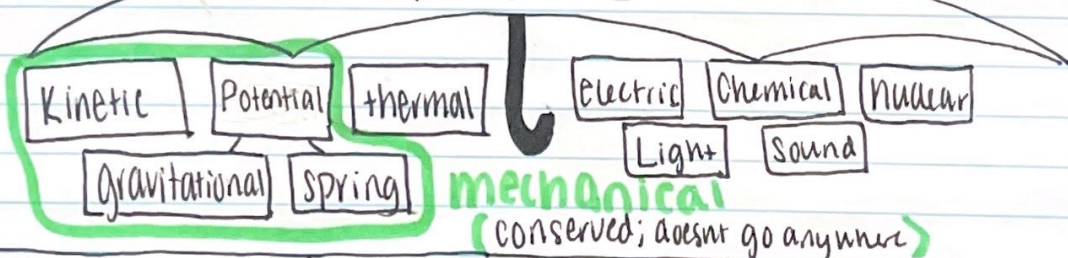 Kinetic Potential thermal electric Chemical nuclear
gravitational spring Light Sound
mechanical
(conserved; doesnt go anywhere)